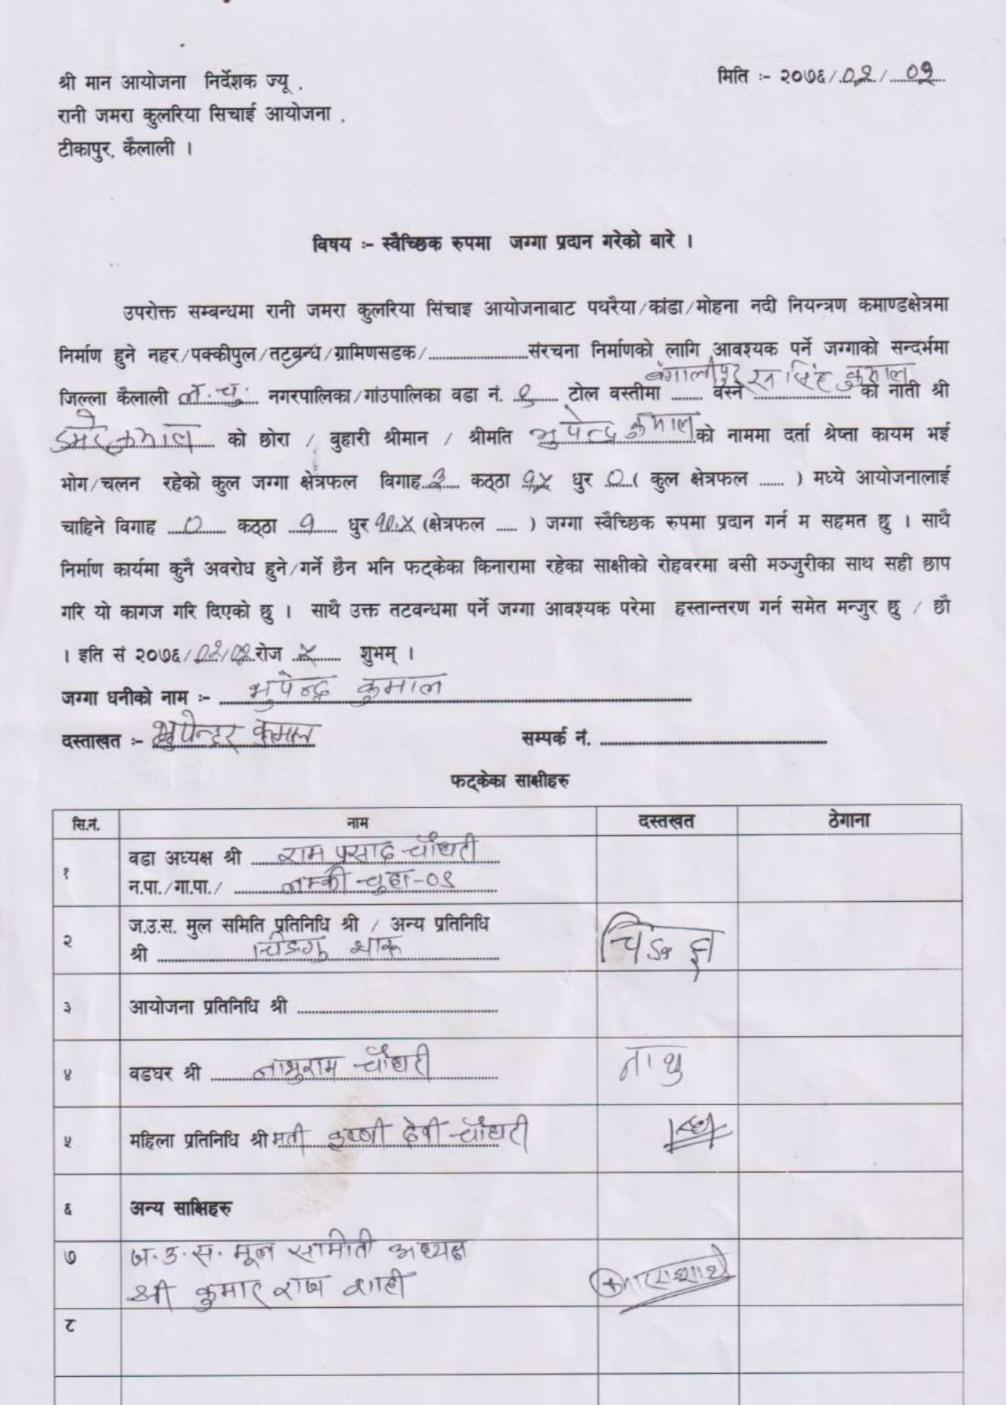 श्री मान आयोजना निर्देशक ज्यू .
मिति :- २०७६/०२/०२
रानी जमरा कुलरिया सिचाई आयोजना .
टीकापुर, कैलाली ।
विषय :- स्वैच्छिक रुपमा जग्गा प्रदान गरेको बारे ।
उपरोक्त सम्बन्धमा रानी जमरा कुलरिया सिंचाइ आयोजनाबाट पथरैया/कांडा/मोहना नदी नियन्त्रण कमाण्डक्षेत्रमा
निर्माण हुने नहर/पक्कीपुल/तटबन्ध/ग्रामिणसडक/....................संरचना निर्माणको लागि आवश्यक पर्ने जग्गाको सन्दर्भमा
जिल्ला कैलाली ल.चु. नगरपालिका/गांउपालिका वडा नं. ९ टोल वस्तीमा बंगालीपुर वस्ने सिंह कुमाल को नाती श्री
कुमाल को छोरा / बुहारी श्रीमान / श्रीमति भुपेन्द्र कुमाल को नाममा दर्ता श्रेष्ता कायम भई
भोग/चलन रहेको कुल जग्गा क्षेत्रफल विगाह ३ कठ्ठा १५ धुर ०( कुल क्षेत्रफल ...... ) मध्ये आयोजनालाई
चाहिने विगाह ० कठ्ठा १ धुर १०.५ (क्षेत्रफल ..... ) जग्गा स्वैच्छिक रुपमा प्रदान गर्न म सहमत छु । साथै
निर्माण कार्यमा कुनै अवरोध हुने/गर्ने छैन भनि फट्केका किनारामा रहेका साक्षीको रोहवरमा बसी मञ्जुरीका साथ सही छाप
गरि यो कागज गरि दिएको छु । साथै उक्त तटबन्धमा पर्ने जग्गा आवश्यक परेमा हस्तान्तरण गर्न समेत मन्जुर छु / छौ
। इति सं २०७६/०२/०२ रोज ५ शुभम् ।
जग्गा धनीको नाम :- भुपेन्द्र कुमाल
दस्ताखत :- भुपेन्दर कुमाल सम्पर्क नं. ....................
फट्केका साक्षीहरु
सि.नं. नाम दस्तखत ठेगाना
१ वडा अध्यक्ष श्री राम प्रसाद चौधरी
न.पा./गा.पा./ लम्की चुहा-०९
२ ज.उ.स. मुल समिति प्रतिनिधि श्री / अन्य प्रतिनिधि
श्री
३ आयोजना प्रतिनिधि श्री ....................
४ वडघर श्री चौधरी
५ महिला प्रतिनिधि श्री मती कृष्णी देवी चौधरी
६ अन्य साक्षिहरु
७ ज.उ.स. मूल समिती अध्यक्ष
श्री कुमार राज शाही
८